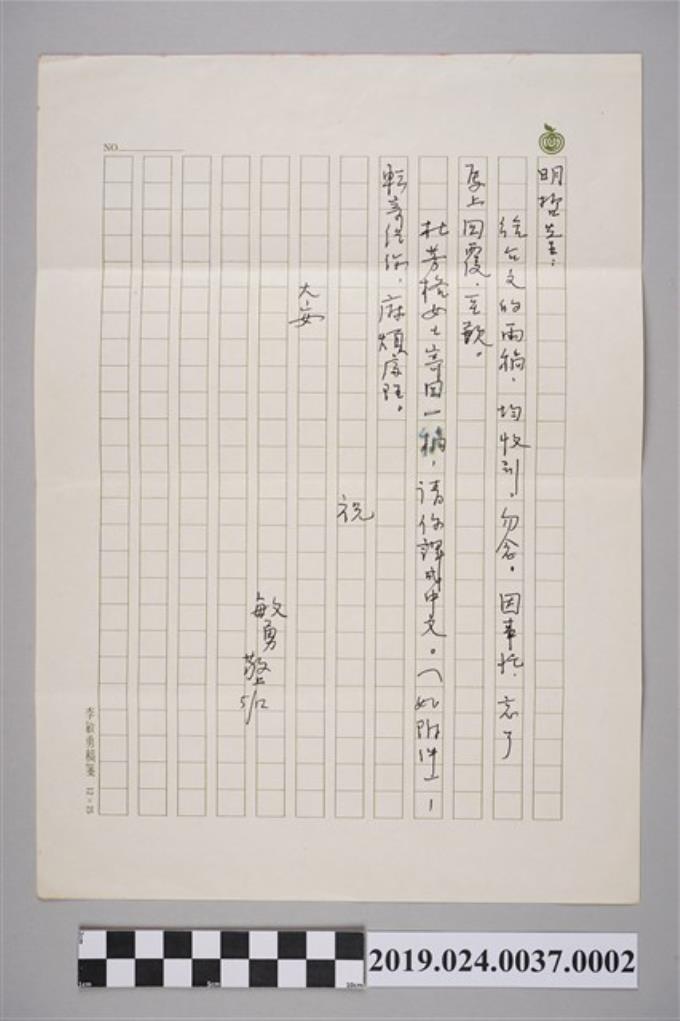 NO.
明哲先生:
給台文的兩稿,均收到,勿念。因事忙,忘了
馬上回覆,至歉。
杜芳格女士寄回一稿,請你譯成中文。(如附件)
轉寄給你,麻煩處理。
祝
大安
敏勇
敬上
5/12
李敏勇稿箋 12×25
2019.024.0037.0002
1cm 5cm 10cm